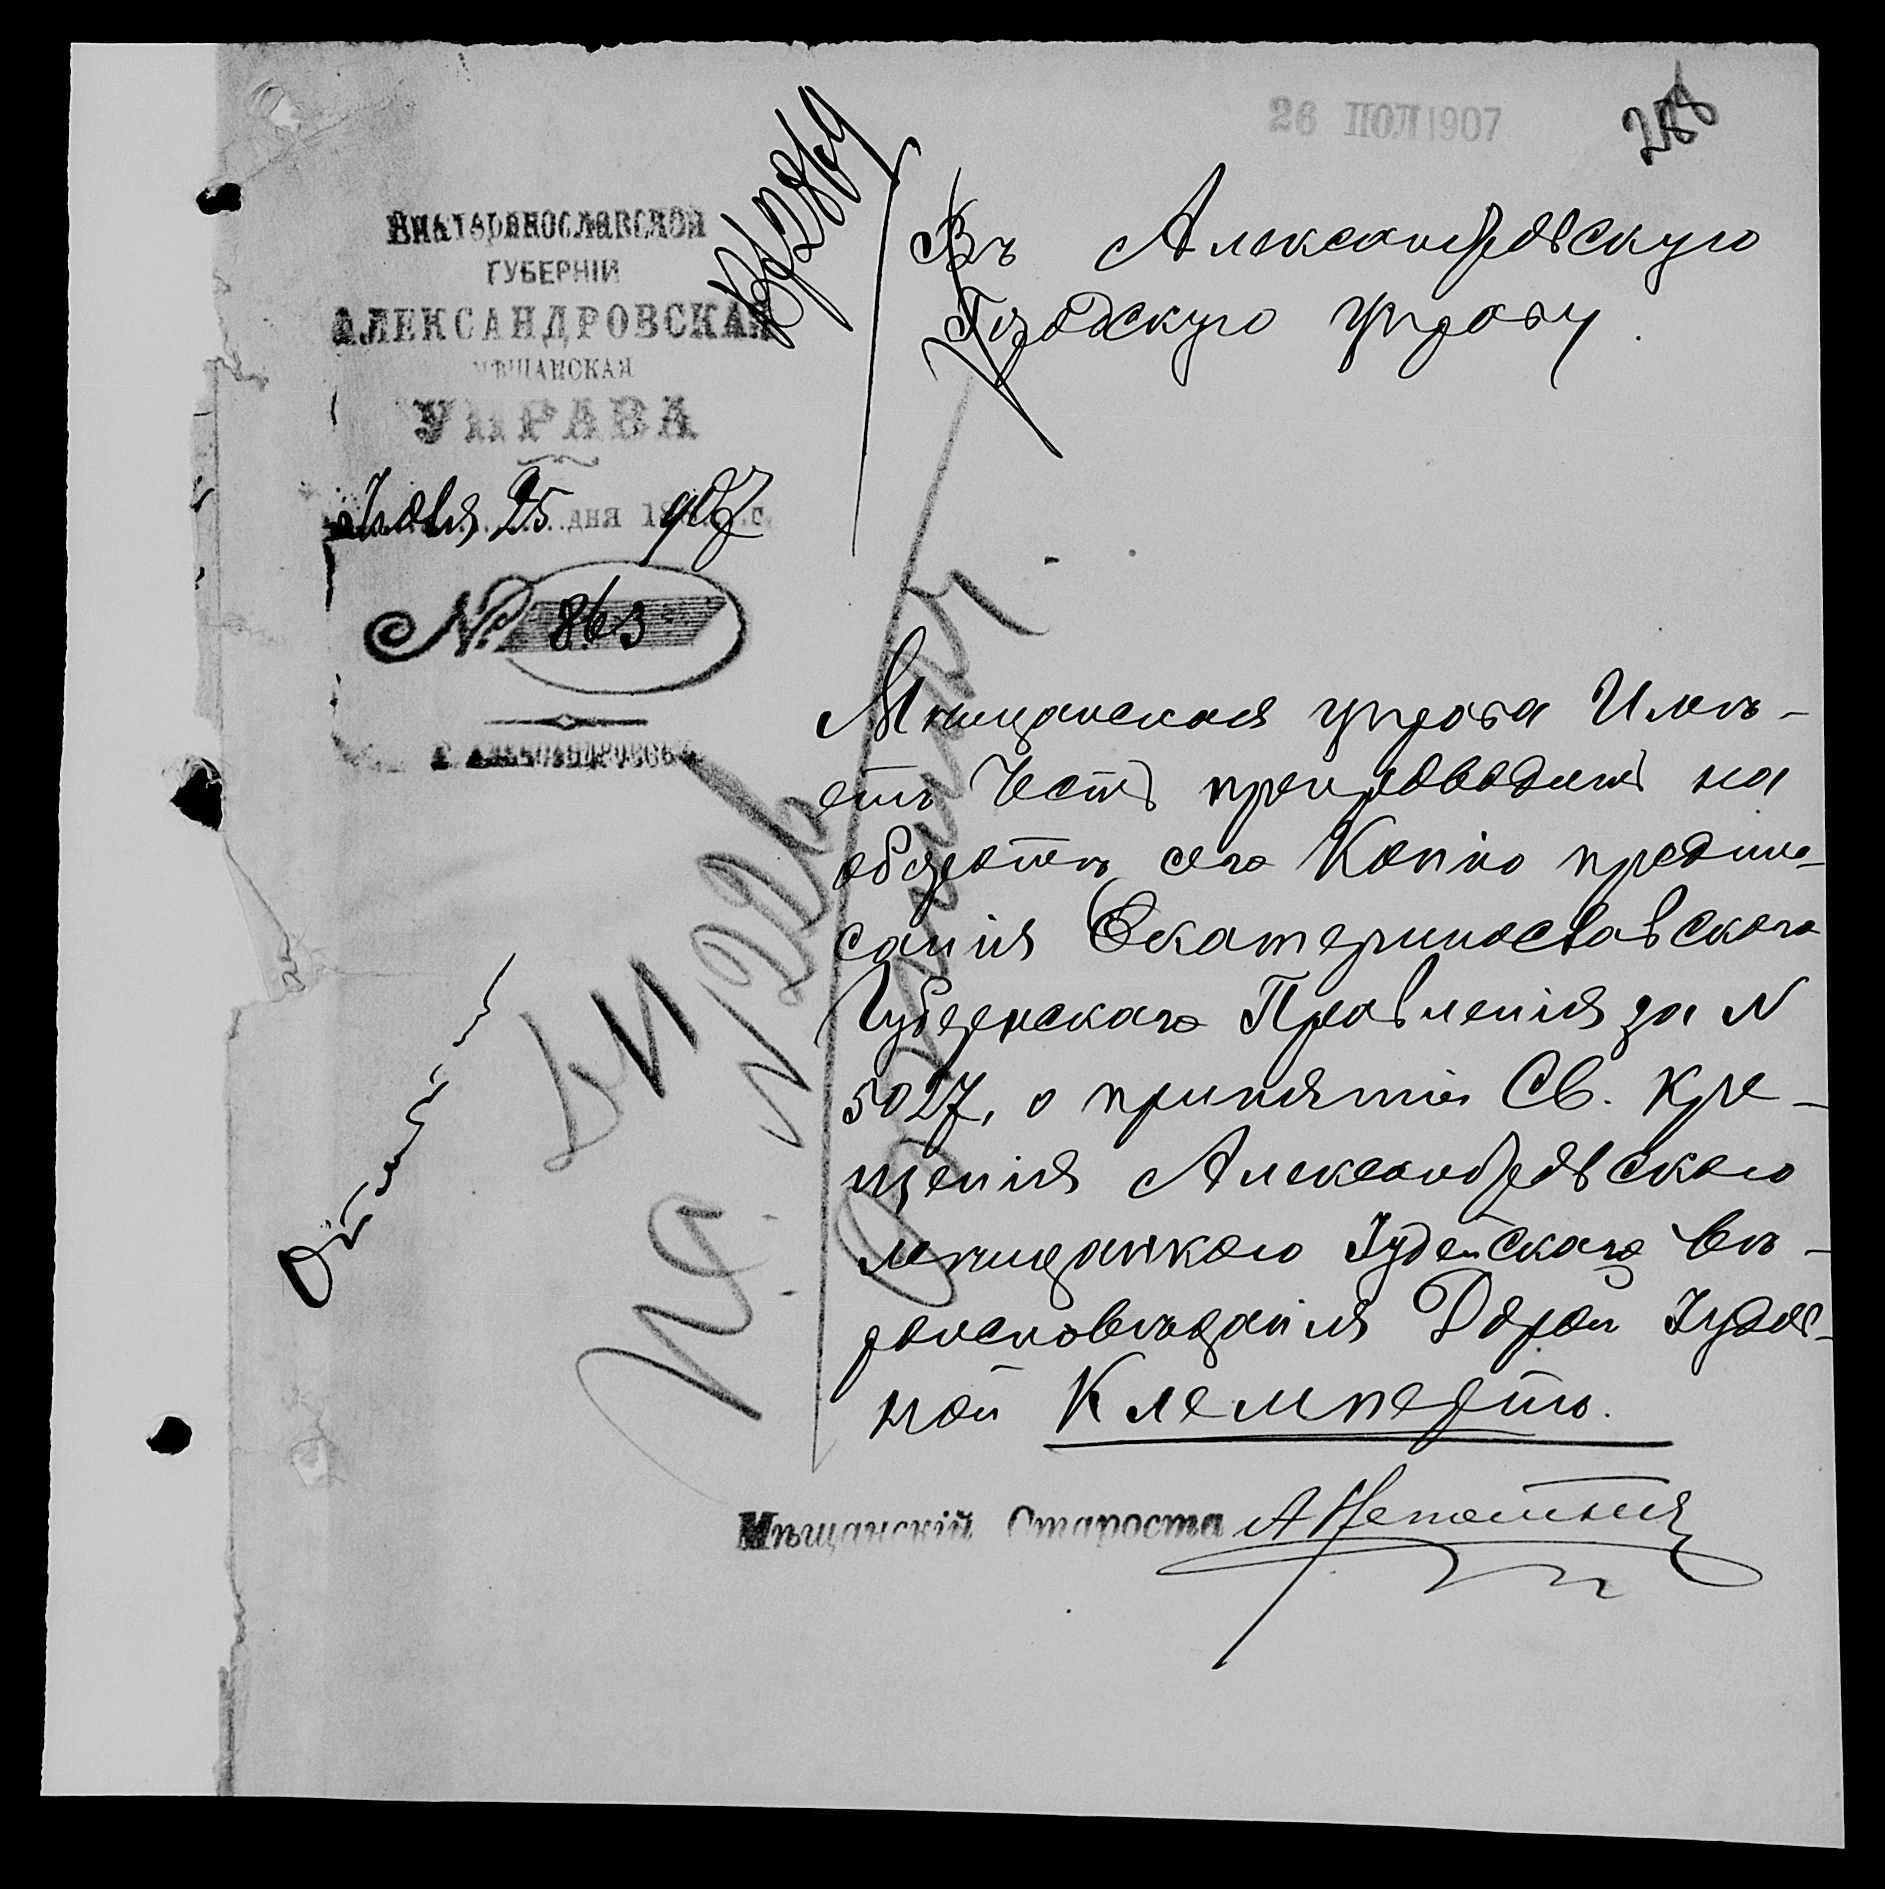 26 ІЮЛ 1907
288
Екатеринославской
ГУБЕРНІИ
АЛЕКСАНДРОВСКАЯ
МѢЩАНСКАЯ
УПРАВА
Іюля 25 дня 1907 г.
№ 863
Г. АЛЕКСАНДРОВСКЪ
Въ Александровскую
Городскую управу.
Мѣщанская управа Имѣ-
етъ Честь препроводить на
оборотѣ сего Копію предпи-
санія Екатеринославскаго
Губернскаго Правленія за N
5027, о принятіи Св. Кре-
щенія Александровскою
мѣщанкою Іудейскаго вѣ-
роисповѣданія Дорой Іудов-
ной Клемпертъ.
Мѣщанскій Староста